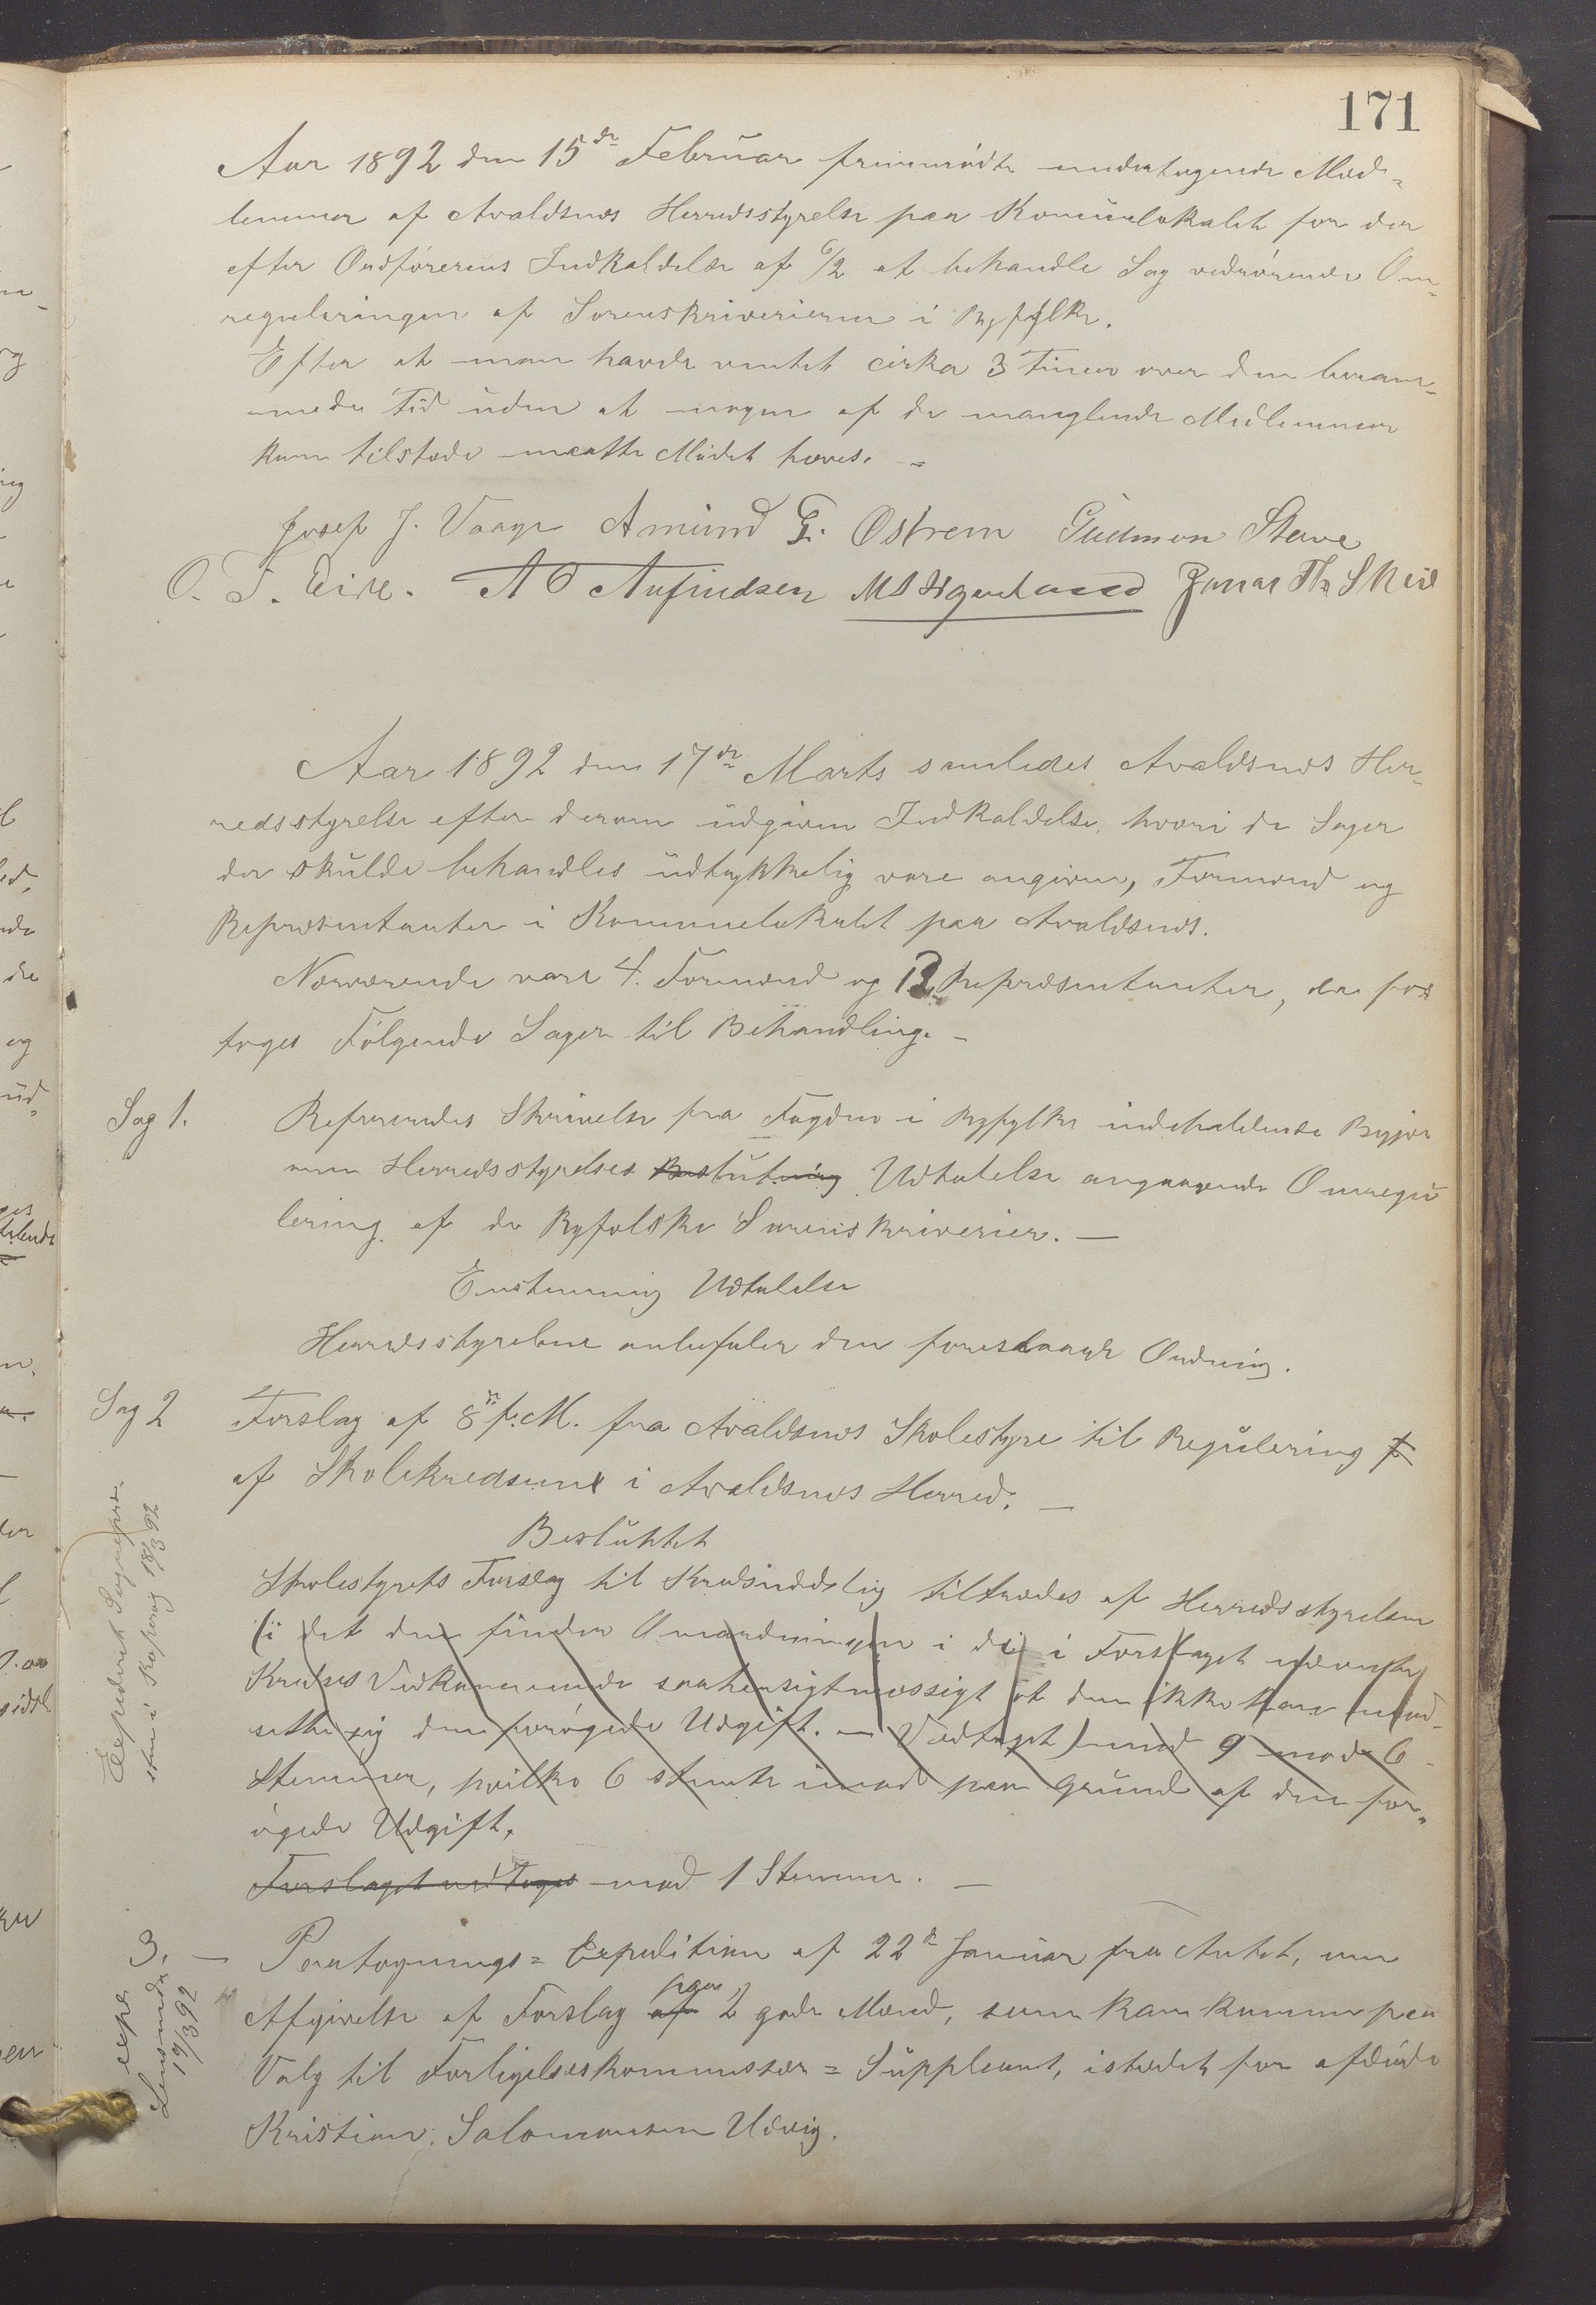 171
Aar 1892 den 15de Februar fremmødte undertegnede Med-
lemmer af Avaldsnes Herredsstyrelse paa Komunelokalet for der
efter Ordførerens Indkaldelse af 6/2 at behandle Sag vedrørende Om-
reguleringen af Sorenskriverierne i Ryfylke.
Efter at man havde ventet cirka 3 Timer over den beram-
mede Tid uden at nogen af de manglende Medlemmer
kom tilstede maatte Mødet hæves. -
Josef J. Vaage Amund G. Østrem Gudmon Stave
O. T. Eide. A O Anfindsen Jonas Th Skeie
Aar 1892 den 17de Marts samledes Avaldsnes Her-
redsstyrelse efter derom udgiven Indkaldelse, hvori de Sager
der skulde behandles udtrykkelig vare angivne, Formænd og
Repræsentanter i Kommunelokalet paa Avaldsnes.
Nærværende vare 4. Formænd og 12 Repræsentanter, da for
toges Følgende Sager til Behandling. -
Sag 1. Refereredes Skrivelse fra Fogden i Ryfylke indeholdende Begjær
om Herredsstyrelses Beslutning Udtalelse angaaende Omregu
lering af de Ryfylkske Sorenskriverier. —
Enstemmig Udtalelse
Herredsstyrelsen anbefaler den foreslaaede Ordning.
Sag 2 Forslag af 8de f. M. fra Avaldsnes Skolestyre til Regulering f
af Skolekredsene i Avaldsnes Herred. —
Besluttet
Skolestyrets Forslag til Kredsinddeling tiltrædes af Herredsstyrelsen
(i det den finder Omordningen i de i Forslaget nævnte
Kredses Vedkommende saa hensigtmæssigt at den ikke kan mod-
sette sig den forøgede Udgift. — Vedtaget) med 9 mod 6
Stemmer, hvilke 6 stemte imod paa Grund af den for-
øgede Udgift.
Forslaget vedtoges mod 1 Stemme. —
Expederet Sogneprest
sten i Kopervig 18/3 92
3. — Paategnings-Expedition af 22de Januar fra Amtet, om
Afgivelse af Forslag af paa 2 gode Mænd, som kan komme paa
Valg til Forligelseskommissær-Suppleant, istedet for afdøde
Kristian Salomonsen Utvig.
expr
Lensmnd
19/3 92